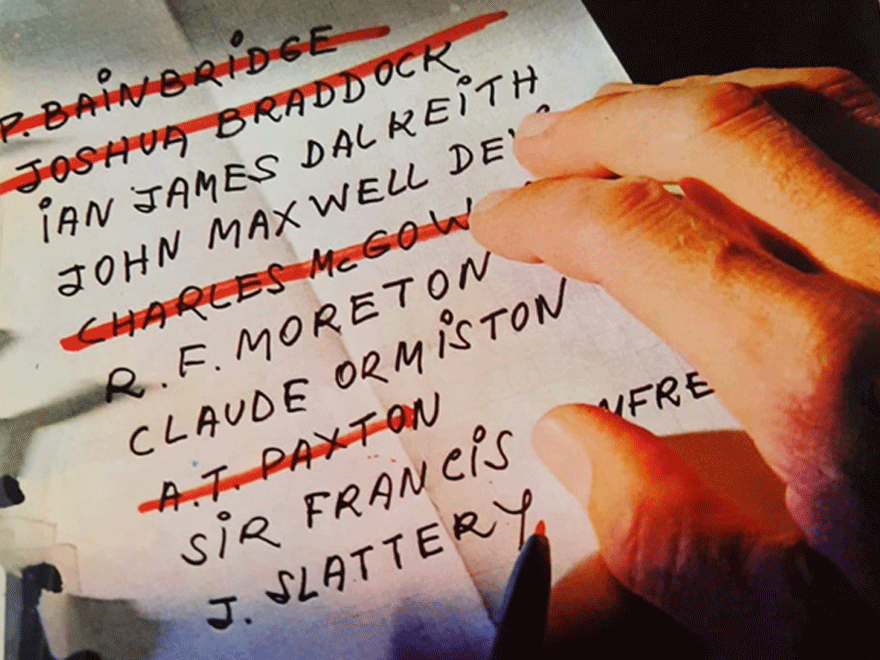 P. BAINBRIDGE
JOSHUA BRADDOCK
IAN JAMES DALKEITH
JOHN MAXWELL
CHARLES
R. F. MORETON
CLAUDE ORMISTON
A.T. PAXTON
SIR FRANCIS
J. SLATTERY